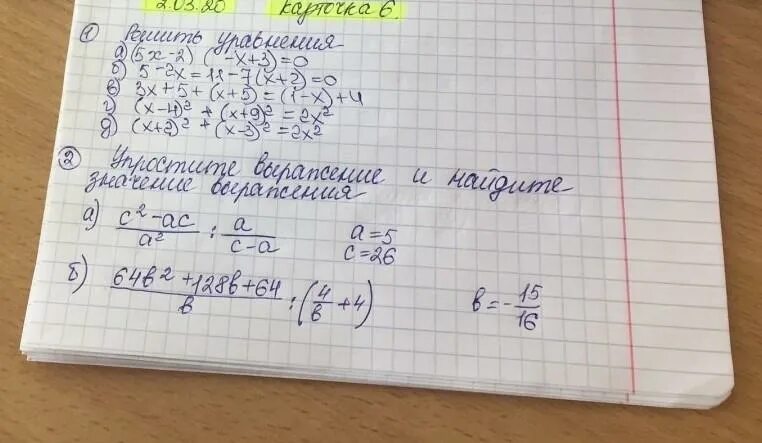 2.03.20 карточка 6.
① Решить уравнения
а) (5x-2) (-x+3)=0
б) 5-2x=11-7(x+2)=0
в) 3x+5+(x+5)=(1-x)+4
г) (x-4)²+(x+9)²=2x²
д) (x+2)²+(x-3)²=2x²
② Упростите выражение и найдите
значение выражения
а) c²-ac/a² : a/c-a a=5
c=26
б) 64b²+128b+64/b : (4/b+4) b=-15/16